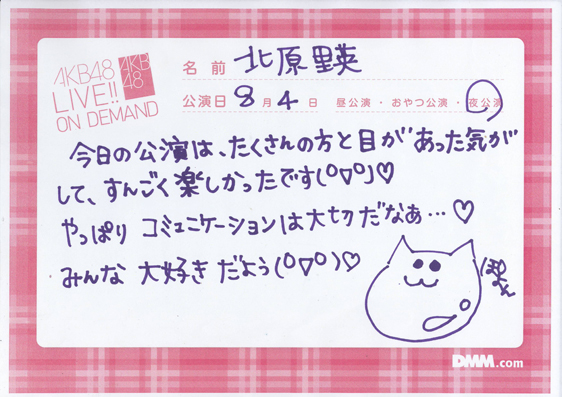 AKB48
LIVE!!
ON DEMAND
AKB
48
名前 北原里英
公演日 8月4日 昼公演・おやつ公演・夜公演
今日の公演は、たくさんの方と目があった気が
して、すんごく楽しかったです(o▽o)♡
やっぱり コミュニケーションは大切だなあ…♡
みんな 大好きだよう(o▽o)♡
DMM.com